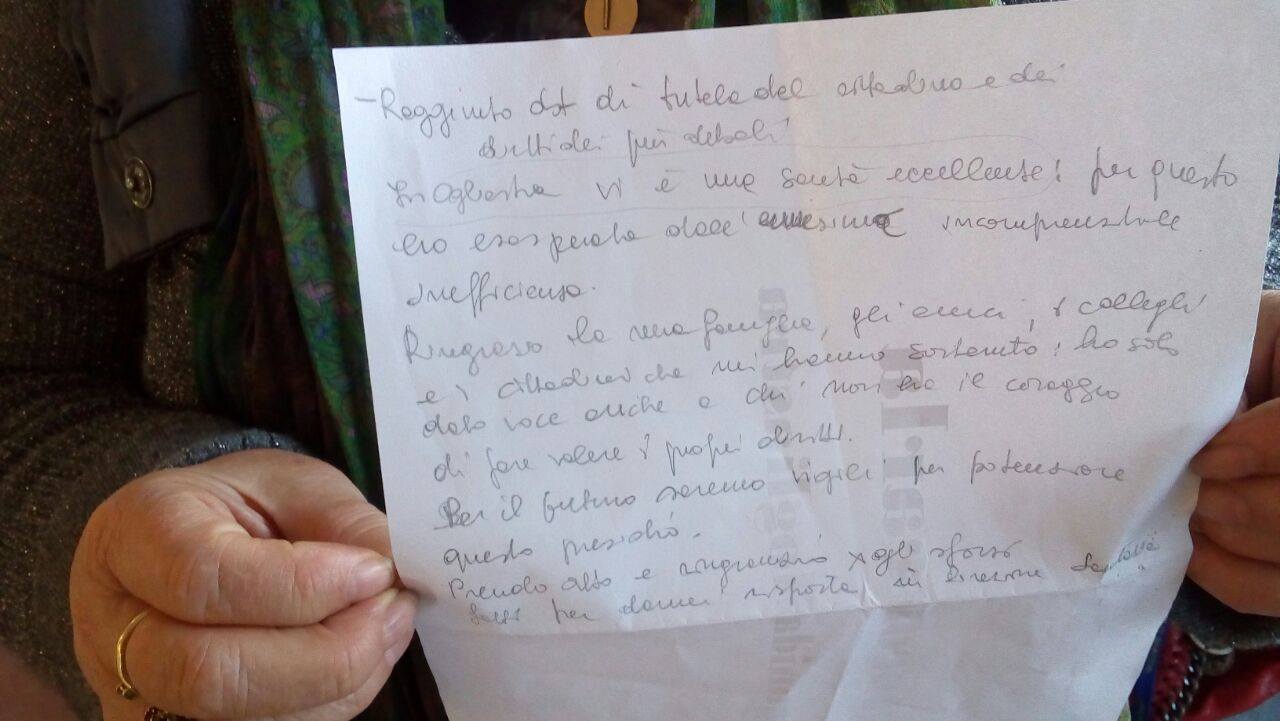 - Raggiunto dst di tutela del cittadino e dei
diritti dei più deboli
In Ogliastra vi è una sanità eccellente: per questo
ero esasperata dall'ennesima incomprensibile
inefficienza.
Ringrazio la mia famiglia, gli amici, i colleghi
e i cittadini che mi hanno sostenuto: ho solo
dato voce anche a chi non ha il coraggio
di fare valere i propri diritti.
Per il futuro saremo vigili per potenziare
questo presidio.
Prendo atto e ringrazio x gli sforzi
fatti per darmi risposta, in direzione